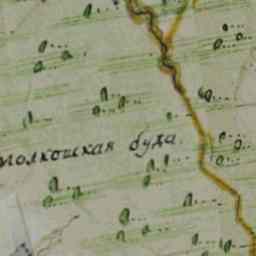 молкошская буда